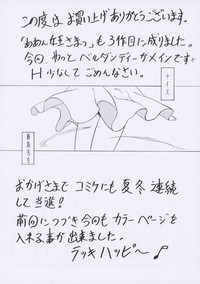 この度はお買い上げありがとうございます。
「ああん女王さまっ」も3作目に成りました。
今回 やっと ベルダンディーがメインです♡
H 少なくて ごめんなさい。
ナイス
おかげさまで コミケにも 夏冬 連続
して 当選！
前回につづき 今回も カラーページを
入れる事が出来ました。
ラッキ ハッピ〜♪